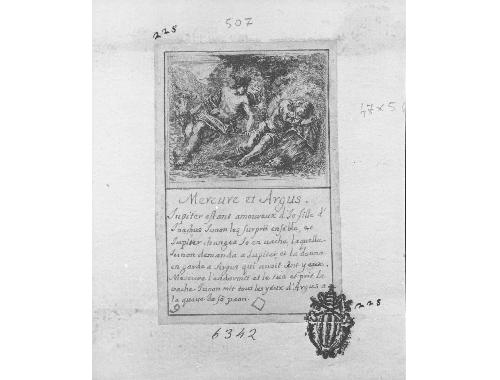 228
507
47x5
Mercure et Argus.
Jupiter estant amouraux d'Jo fille d'
Jnachus Junon les surprit enséble, et
Jupiter changea Jo en vache, laquelle
Junon demanda a Jupiter et la donna
en garde a Argus qui avoit cent yeux.
Mercure l'endormit et le tua et prit la
vache Junon mit tous les yeux d'Argus a
la queue de só paon.
228
6342